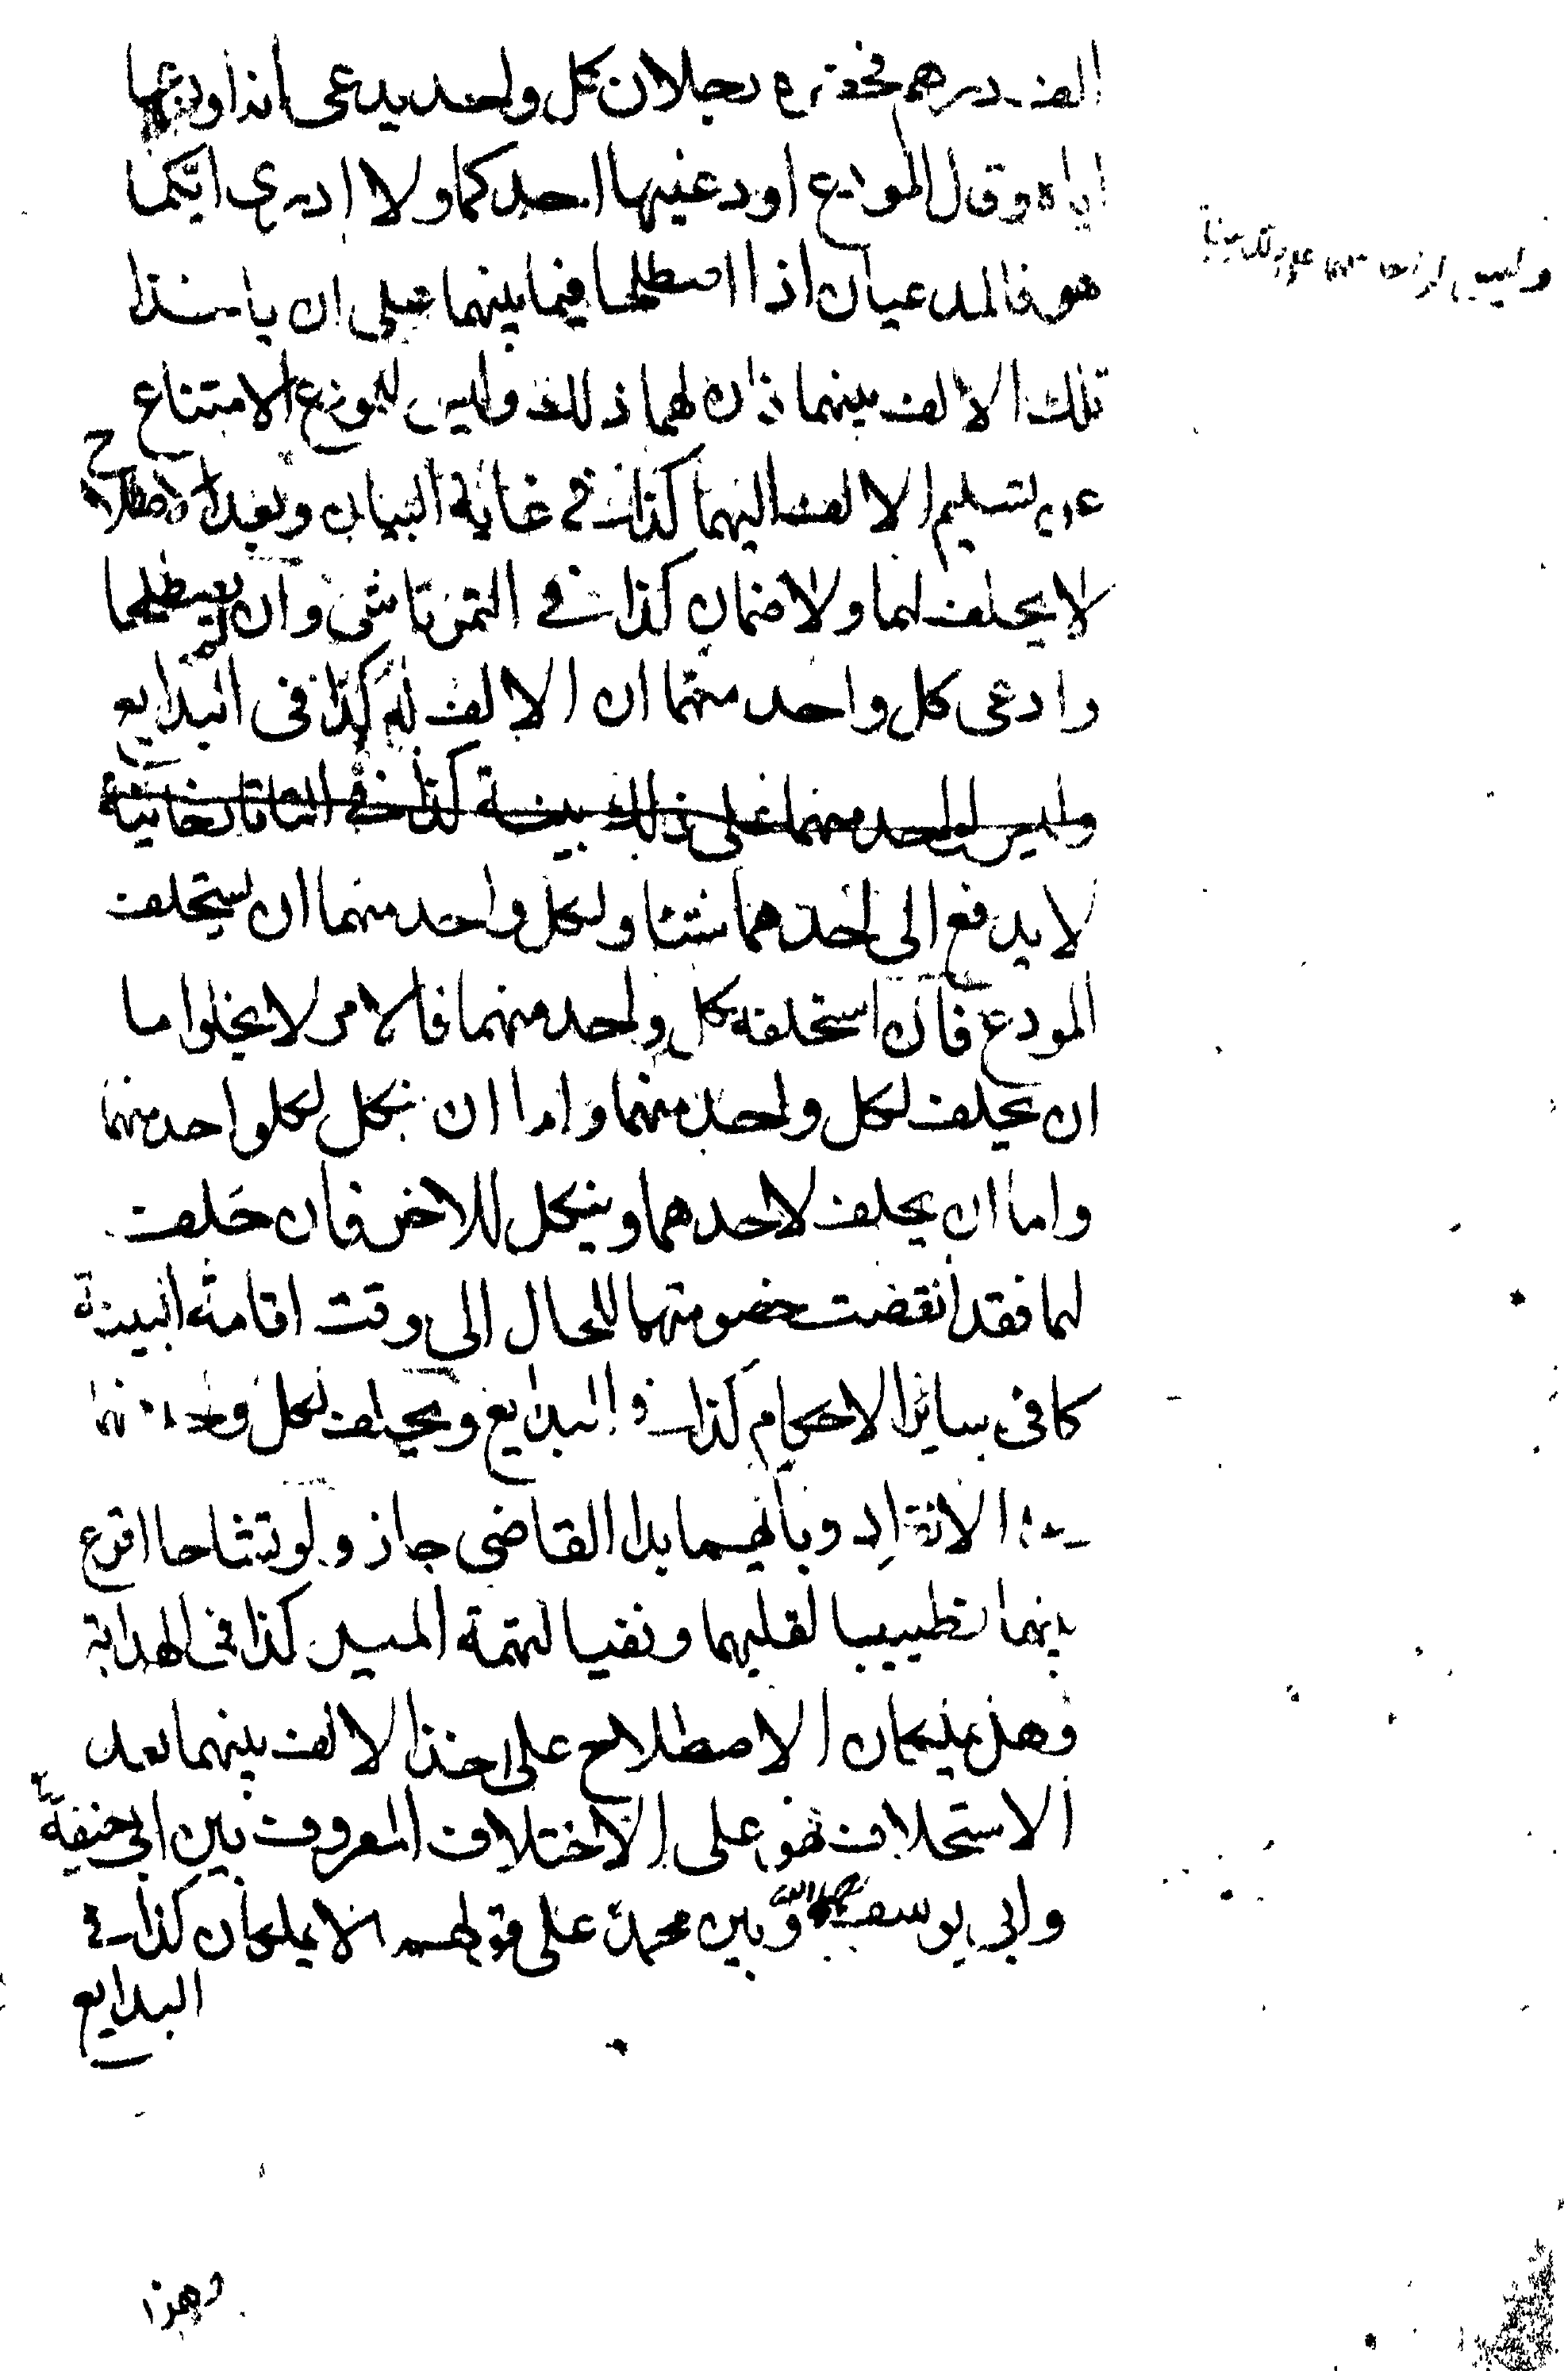 الف درهم فحضر رجلان كل واحد يدعى انه اودعها
اياه وقال المودع اودعنيها احدكما ولا ادرى ايكما
هو فالمدعيان اذا اصطلحا فيما بينهما على ان ياخذا
تلك الالف بينهما فان لهما ذلك وليس للمودع الامتناع
عن تسليم الالف اليهما كذا فى غاية البيان وبعد الاصطلاح
لا يحلف لهما ولا ضمان كذا فى التمرتاشى وان لم يصطلحا
وادعى كل واحد منهما ان الالف له كذا فى البدايع
وليس لواحد منهما على ذلك بينة كذا فى التاتارخانية
لا يدفع الى احدهما شيئا ولكل واحد منهما ان يستحلف
المودع فان استحلفه كل واحد منهما فالامر لا يخلوا ما
ان يحلف لكل واحد منهما واما ان ينكل لكل واحد منهما
واما ان يحلف لاحدهما وينكل للاخر فان حَلف
لهما فقد انقضت خصومتهما للحال الى وقت اقامة البينة
كما فى ساير الاحكام كذا فى البدايع ويحلف لكل واحد منهما
على الانفراد وبايهما بدا القاضى جاز ولو تشاحا اقرع
بينهما تطييبا لقلبهما ونفيا لتهمة الميل كذا فى الهداية
وهل يملكان الاصطلاح على اخذ الالف بينهما بعد
الاستحلاف فهو على الاختلاف المعروف بين ابى حنيفة
وابى يوسف رحمهما الله وبين محمد على قولهما لا يملكان كذا فى
البدايع
وهذا